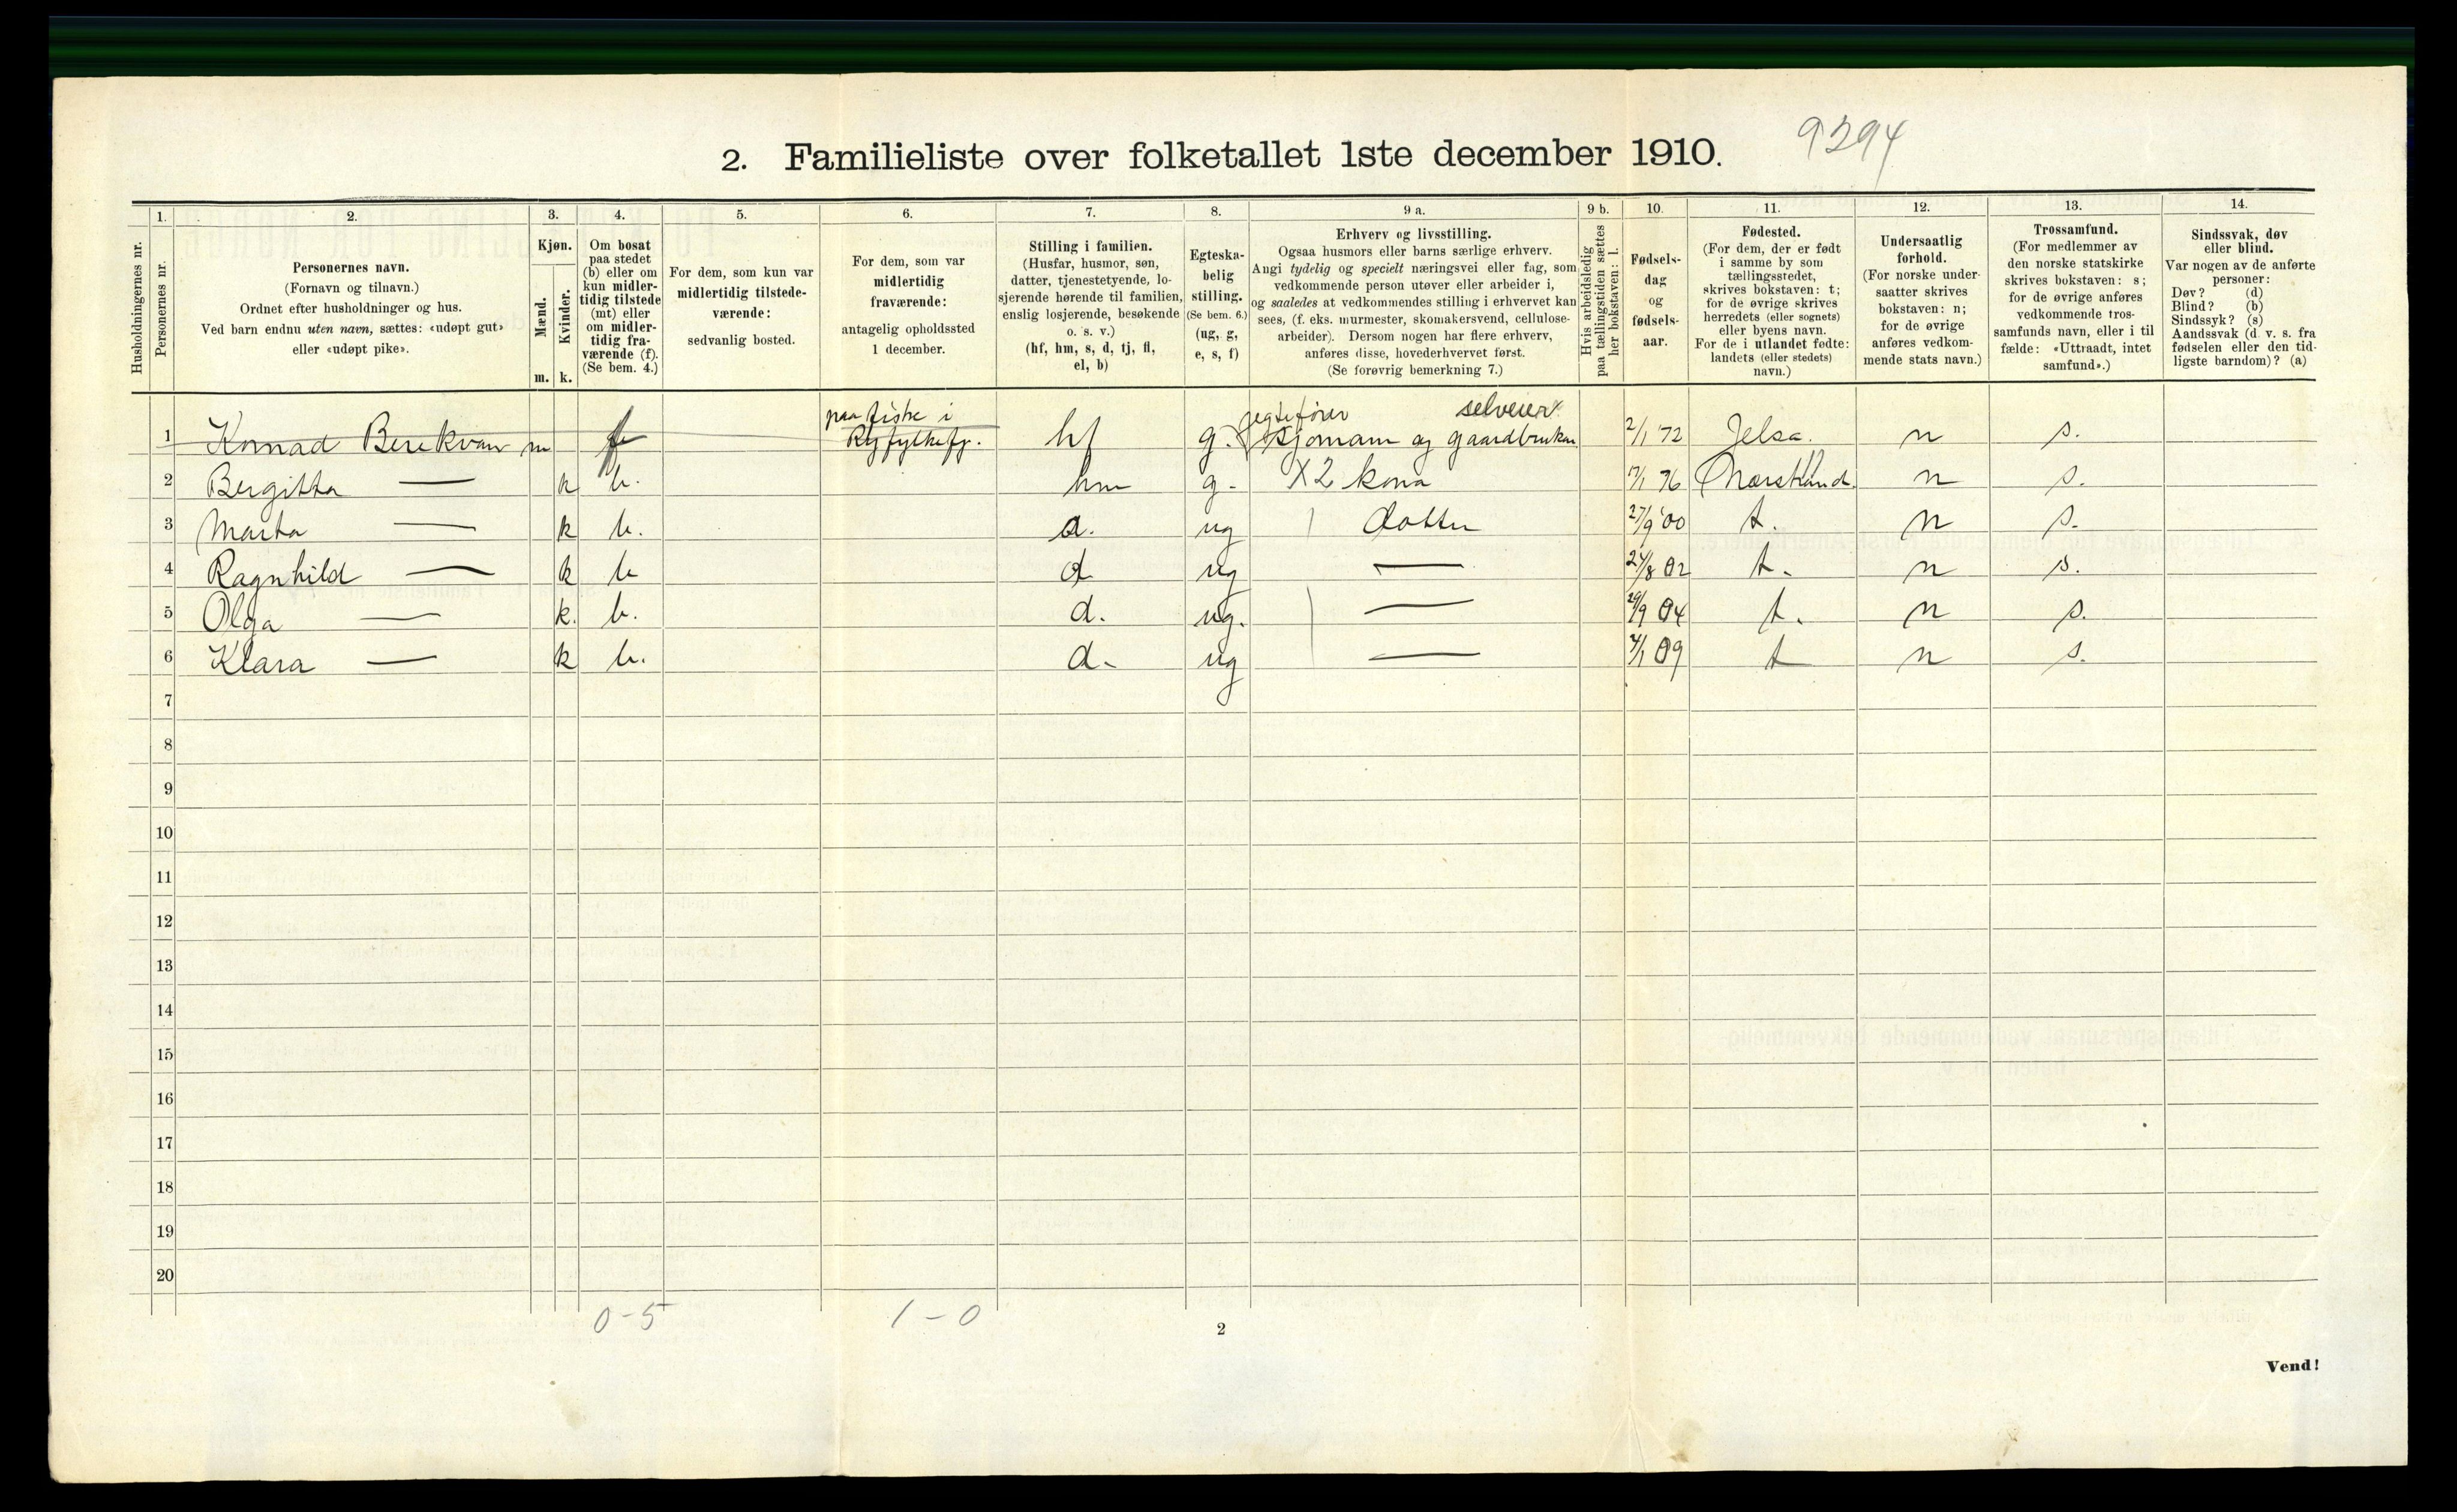 2. Familieliste over folketallet 1ste december 1910.
9294
Husholdningernes nr.
1.
Personernes nr.
2.
Personernes navn.
(Fornavn og tilnavn.)
Ordnet efter husholdninger og hus.
Ved barn endnu uten navn, sættes: «udøpt gut»
eller «udøpt pike».
3.
Kjøn.
Mænd.
Kvinder.
m. k.
4.
Om bosat
paa stedet
(b) eller om
kun midler-
tidig tilstede
(mt) eller
om midler-
tidig fra-
værende (f).
(Se bem. 4.)
5.
For dem, som kun var
midlertidig tilstede-
værende:
sedvanlig bosted.
6.
For dem, som var
midlertidig
fraværende:
antagelig opholdssted
1 december.
7.
Stilling i familien.
(Husfar, husmor, søn,
datter, tjenestetyende, lo-
sjerende hørende til familien,
enslig losjerende, besøkende
o. s. v.)
(hf, hm, s, d, tj, fl,
el, b)
8.
Egteska-
belig
stilling.
(Se bem. 6.)
(ug, g,
e, s, f)
9 a.
Erhverv og livsstilling.
Ogsaa husmors eller barns særlige erhverv.
Angi tydelig og specielt næringsvei eller fag, som
vedkommende person utøver eller arbeider i,
og saaledes at vedkommendes stilling i erhvervet kan
sees, (f. eks. murmester, skomakersvend, cellulose-
arbeider). Dersom nogen har flere erhverv,
anføres disse, hovederhvervet først.
(Se forøvrig bemerkning 7.)
9 b.
Hvis arbeidsledig
paa tællingstiden sættes
her bokstaven: l.
10.
Fødsels-
dag
og
fødsels-
aar.
11.
Fødested.
(For dem, der er født
i samme by som
tællingsstedet,
skrives bokstaven: t;
for de øvrige skrives
herredets (eller sognets)
eller byens navn.
For de i utlandet fødte:
landets (eller stedets)
navn.)
12.
Undersaatlig
forhold.
(For norske under-
saatter skrives
bokstaven: n;
for de øvrige
anføres vedkom-
mende stats navn.)
13.
Trossamfund.
(For medlemmer av
den norske statskirke
skrives bokstaven: s;
for de øvrige anføres
vedkommende tros-
samfunds navn, eller i til
fælde: «Uttraadt, intet
samfund».)
14.
Sindssvak, døv
eller blind.
Var nogen av de anførte
personer:
Døv? (d)
Blind? (b)
Sindssyk? (s)
Aandssvak (d. v. s. fra
fødselen eller den tid-
ligste barndom)? (a)
paa fiske i jegtefører selveier
1 Konrad Berekvam m f Ryfylkefj. hf g. Sjømann og gaardbruker 2/1 72 Jelsa. n s.
2 Bergitta — k b. hm g. X2 kona 17/1 76 Nærstrand. n s.
3 Marta — k b. d. ug Datter 27/9 00 t. n s.
4 Ragnhild — k b d ug — 24/8 02 t. n s.
5 Olga — k. b. d. ug. — 29/9 04 t. n s.
6 Klara — k b. d. ug — 4/1 09 t n s.
7
8
9
10
11
12
13
14
15
16
17
18
19
20
0-5 1-0
2
Vend!